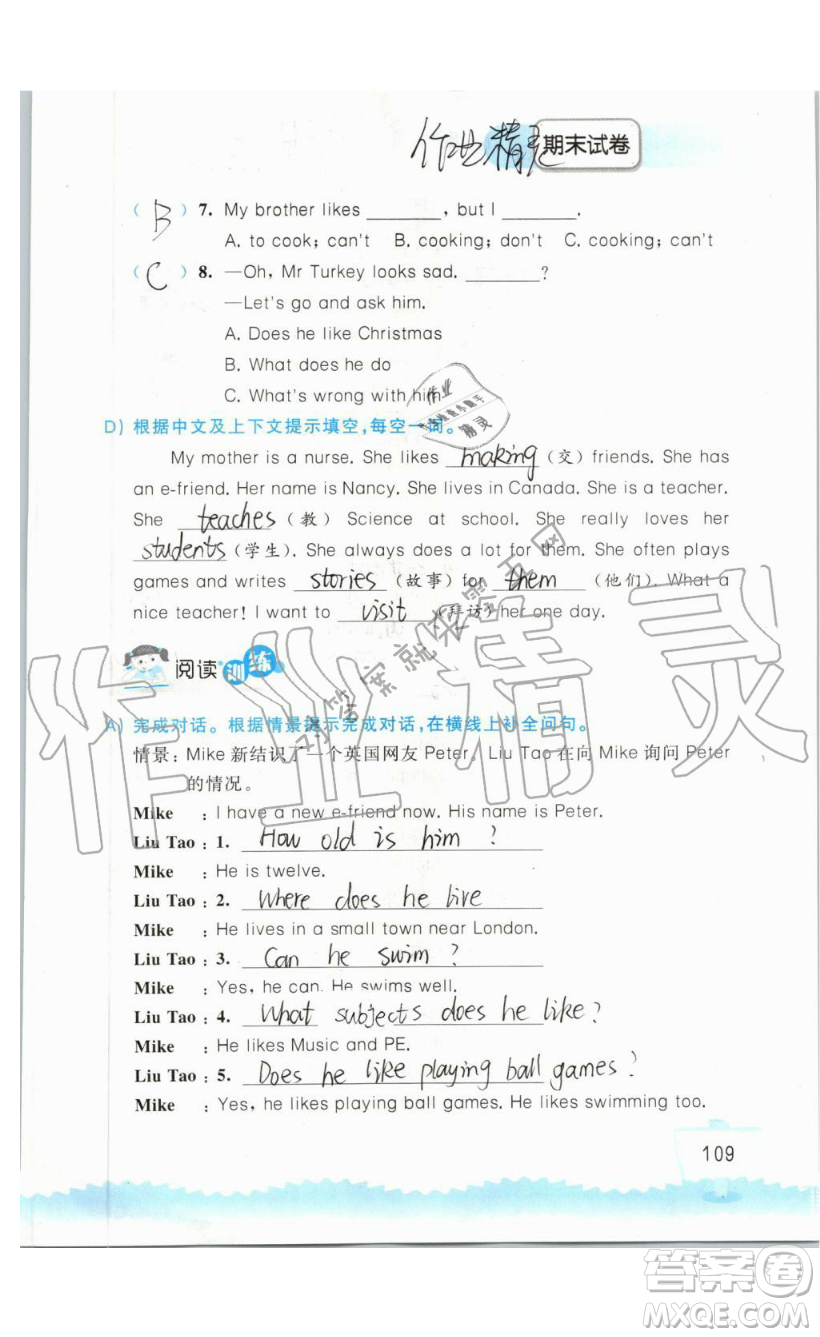 作业精灵
期末试卷
( B ) 7. My brother likes ________, but I ________.
A. to cook; can't B. cooking; don't C. cooking; can't
( C ) 8. —Oh, Mr Turkey looks sad. ________?
—Let's go and ask him.
A. Does he like Christmas
B. What does he do
C. What's wrong with him
D) 根据中文及上下文提示填空,每空一词。
My mother is a nurse. She likes making (交) friends. She has
an e-friend. Her name is Nancy. She lives in Canada. She is a teacher.
She teaches (教) Science at school. She really loves her
students (学生). She always does a lot for them. She often plays
games and writes stories (故事) for them (他们). What a
nice teacher! I want to visit (拜访) her one day.
阅读训练
A) 完成对话。根据情景提示完成对话,在横线上补全问句。
情景:Mike 新结识了一个英国网友 Peter, Liu Tao 在向 Mike 询问 Peter
的情况。
Mike : I have a new e-friend now. His name is Peter.
Liu Tao : 1. How old is him ?
Mike : He is twelve.
Liu Tao : 2. Where does he live
Mike : He lives in a small town near London.
Liu Tao : 3. Can he swim ?
Mike : Yes, he can. He swims well.
Liu Tao : 4. What subjects does he like?
Mike : He likes Music and PE.
Liu Tao : 5. Does he like playing ball games?
Mike : Yes, he likes playing ball games. He likes swimming too.
109
作业精灵
对答案就找零五网
答案卷
MXQE.COM